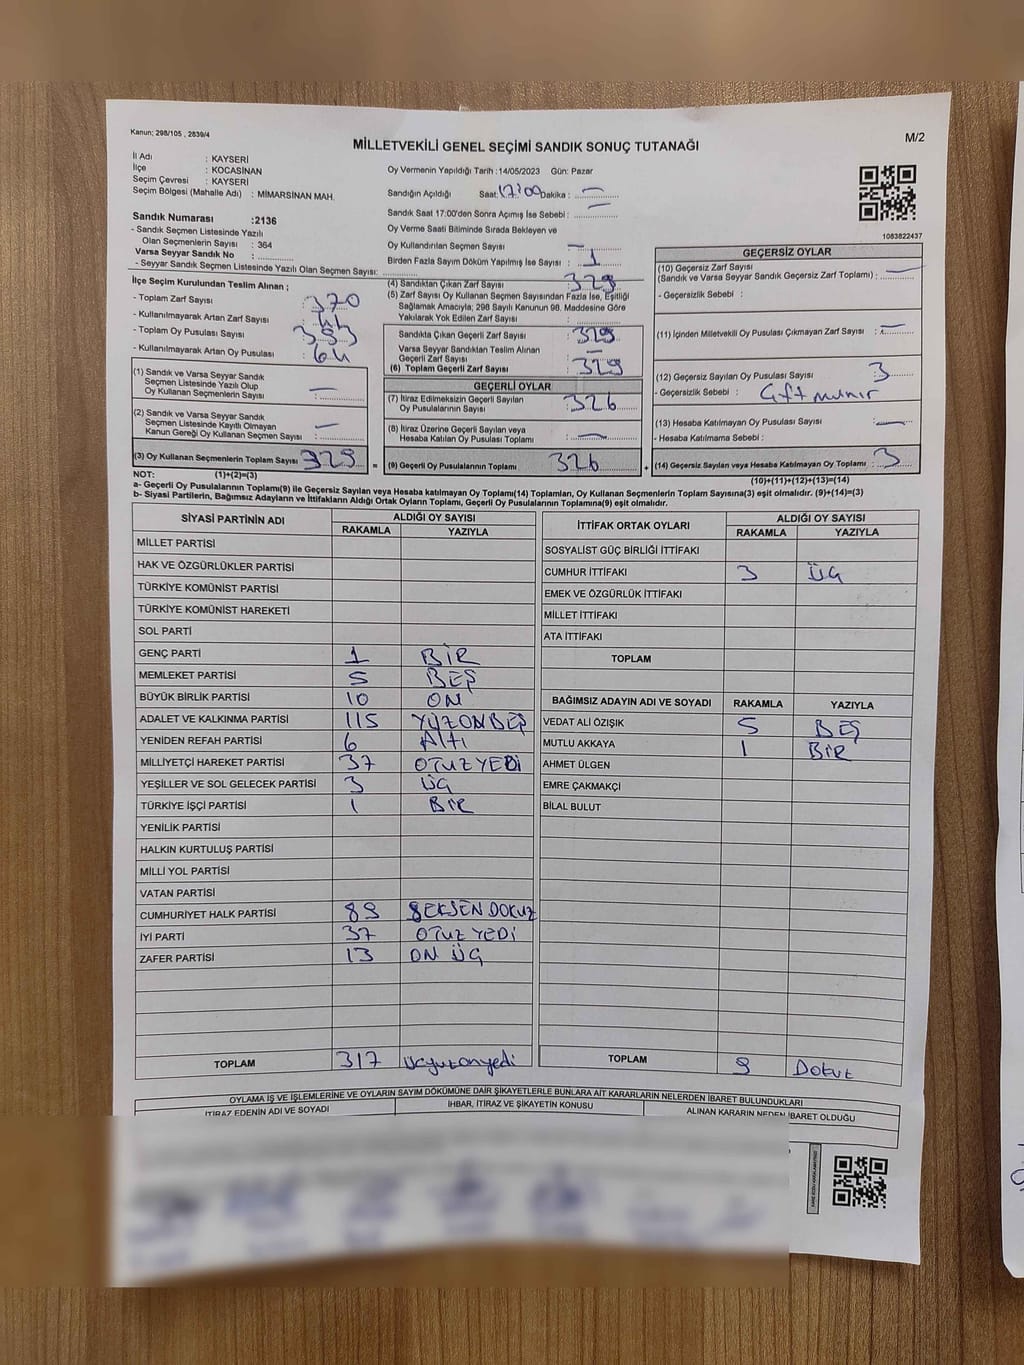 Kanun; 298/105 , 2839/4
M/2
MİLLETVEKİLİ GENEL SEÇİMİ SANDIK SONUÇ TUTANAĞI
İl Adı : KAYSERİ
İlçe : KOCASİNAN
Seçim Çevresi : KAYSERİ
Seçim Bölgesi (Mahalle Adı) : MİMARSİNAN MAH.
Sandık Numarası :2136
- Sandık Seçmen Listesinde Yazılı
Olan Seçmenlerin Sayısı : 364
Varsa Seyyar Sandık No :
- Seyyar Sandık Seçmen Listesinde Yazılı Olan Seçmen Sayısı:
Oy Vermenin Yapıldığı Tarih :14/05/2023 Gün: Pazar
Sandığın Açıldığı Saat: 17:00 Dakika : —
Sandık Saat 17:00'den Sonra Açımış İse Sebebi : —
Oy Verme Saati Bitiminde Sırada Bekleyen ve
Oy Kullandırılan Seçmen Sayısı : —
Birden Fazla Sayım Döküm Yapılmış İse Sayısı : 1
1083822437
İlçe Seçim Kurulundan Teslim Alınan ;
- Toplam Zarf Sayısı : 370
- Kullanılmayarak Artan Zarf Sayısı : 41
- Toplam Oy Pusulası Sayısı : 393
- Kullanılmayarak Artan Oy Pusulası : 64
(1) Sandık ve Varsa Seyyar Sandık
Seçmen Listesinde Yazılı Olup
Oy Kullanan Seçmenlerin Sayısı : —
(2) Sandık ve Varsa Seyyar Sandık
Seçmen Listesinde Kayıtlı Olmayan
Kanun Gereği Oy Kullanan Seçmen Sayısı : —
(3) Oy Kullanan Seçmenlerin Toplam Sayısı : 329
(4) Sandıktan Çıkan Zarf Sayısı : 329
(5) Zarf Sayısı Oy Kullanan Seçmen Sayısından Fazla İse, Eşitliği
Sağlamak Amacıyla; 298 Sayılı Kanunun 98. Maddesine Göre
Yakılarak Yok Edilen Zarf Sayısı :
Sandıkta Çıkan Geçerli Zarf Sayısı : 329
Varsa Seyyar Sandıktan Teslim Alınan
Geçerli Zarf Sayısı : —
(6) Toplam Geçerli Zarf Sayısı : 329
GEÇERLİ OYLAR
(7) İtiraz Edilmeksizin Geçerli Sayılan
Oy Pusulalarının Sayısı : 326
(8) İtiraz Üzerine Geçerli Sayılan veya
Hesaba Katılan Oy Pusulası Toplamı : —
= (9) Geçerli Oy Pusulalarının Toplamı : 326
GEÇERSİZ OYLAR
(10) Geçersiz Zarf Sayısı
(Sandık ve Varsa Seyyar Sandık Geçersiz Zarf Toplamı) : —
- Geçersizlik Sebebi :
(11) İçinden Milletvekili Oy Pusulası Çıkmayan Zarf Sayısı : —
(12) Geçersiz Sayılan Oy Pusulası Sayısı : 3
- Geçersizlik Sebebi : Çift mühür
(13) Hesaba Katılmayan Oy Pusulası Sayısı : —
- Hesaba Katılmama Sebebi :
+ (14) Geçersiz Sayılan veya Hesaba Katılmayan Oy Toplamı : 3
NOT: (1)+(2)=(3)
(10)+(11)+(12)+(13)=(14)
a- Geçerli Oy Pusulalarının Toplamı(9) ile Geçersiz Sayılan veya Hesaba katılmayan Oy Toplamı(14) Toplamları, Oy Kullanan Seçmenlerin Toplam Sayısına(3) eşit olmalıdır. (9)+(14)=(3)
b- Siyasi Partilerin, Bağımsız Adayların ve İttifakların Aldığı Ortak Oyların Toplamı, Geçerli Oy Pusulalarının Toplamına(9) eşit olmalıdır.
SİYASİ PARTİNİN ADI ALDIĞI OY SAYISI
RAKAMLA YAZIYLA
MİLLET PARTİSİ
HAK VE ÖZGÜRLÜKLER PARTİSİ
TÜRKİYE KOMÜNİST PARTİSİ
TÜRKİYE KOMÜNİST HAREKETİ
SOL PARTİ
GENÇ PARTİ 1 BİR
MEMLEKET PARTİSİ 5 BEŞ
BÜYÜK BİRLİK PARTİSİ 10 ON
ADALET VE KALKINMA PARTİSİ 115 YÜZONBEŞ
YENİDEN REFAH PARTİSİ 6 Altı
MİLLİYETÇİ HAREKET PARTİSİ 37 OTUZYEDİ
YEŞİLLER VE SOL GELECEK PARTİSİ 3 ÜÇ
TÜRKİYE İŞÇİ PARTİSİ 1 BİR
YENİLİK PARTİSİ
HALKIN KURTULUŞ PARTİSİ
MİLLİ YOL PARTİSİ
VATAN PARTİSİ
CUMHURİYET HALK PARTİSİ 89 SEKSENDOKUZ
İYİ PARTİ 37 OTUZYEDİ
ZAFER PARTİSİ 13 ON ÜÇ
TOPLAM 317 Üçyüzonyedi
İTTİFAK ORTAK OYLARI ALDIĞI OY SAYISI
RAKAMLA YAZIYLA
SOSYALİST GÜÇ BİRLİĞİ İTTİFAKI
CUMHUR İTTİFAKI 3 ÜÇ
EMEK VE ÖZGÜRLÜK İTTİFAKI
MİLLET İTTİFAKI
ATA İTTİFAKI
TOPLAM
BAĞIMSIZ ADAYIN ADI VE SOYADI RAKAMLA YAZIYLA
VEDAT ALİ ÖZIŞIK 5 BEŞ
MUTLU AKKAYA 1 BİR
AHMET ÜLGEN
EMRE ÇAKMAKÇİ
BİLAL BULUT
TOPLAM 9 Dokuz
OYLAMA İŞ VE İŞLEMLERİNE VE OYLARIN SAYIM DÖKÜMÜNE DAİR ŞİKAYETLERLE BUNLARA AİT KARARLARIN NELERDEN İBARET BULUNDUKLARI
İTİRAZ EDENİN ADI VE SOYADI İHBAR, İTİRAZ VE ŞİKAYETİN KONUSU ALINAN KARARIN NEDEN İBARET OLDUĞU